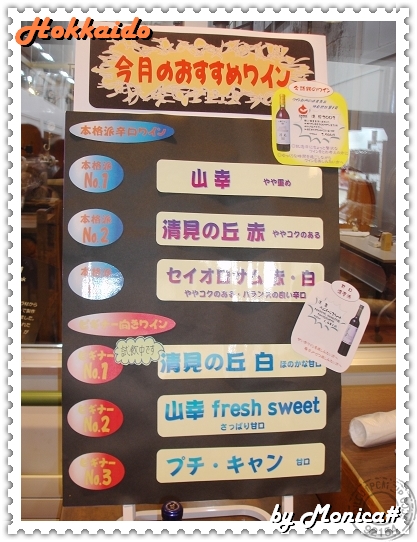 Hokkaido
今月のおすすめワイン
本格派辛口ワイン
本格派 No.1
山幸 やや重め
本格派 No.2
清見の丘 赤 ややコクのある
本格派
セイオロサム 赤・白
ややコクのある・バランスの良い辛口
ビギナー向きワイン
試飲できます
ビギナー No.1
清見の丘 白 ほのかな甘口
ビギナー No.2
山幸 fresh sweet
さっぱり甘口
ビギナー No.3
プチ・キャン 甘口
by Monica#